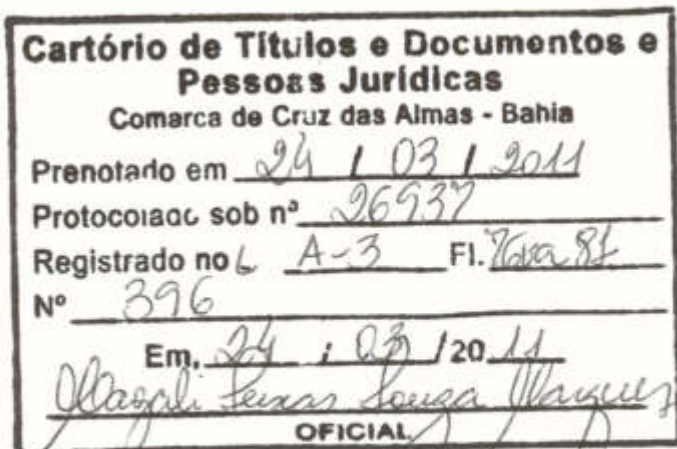 Cartório de Títulos e Documentos e
Pessoas Jurídicas
Comarca de Cruz das Almas - Bahia
Prenotado em 24 / 03 / 2011
Protocolado sob nº 26937
Registrado no L A-3 Fl.
Nº 396
Em, 24 / 03 / 20 11
Magali Seixas Souza Marques
OFICIAL